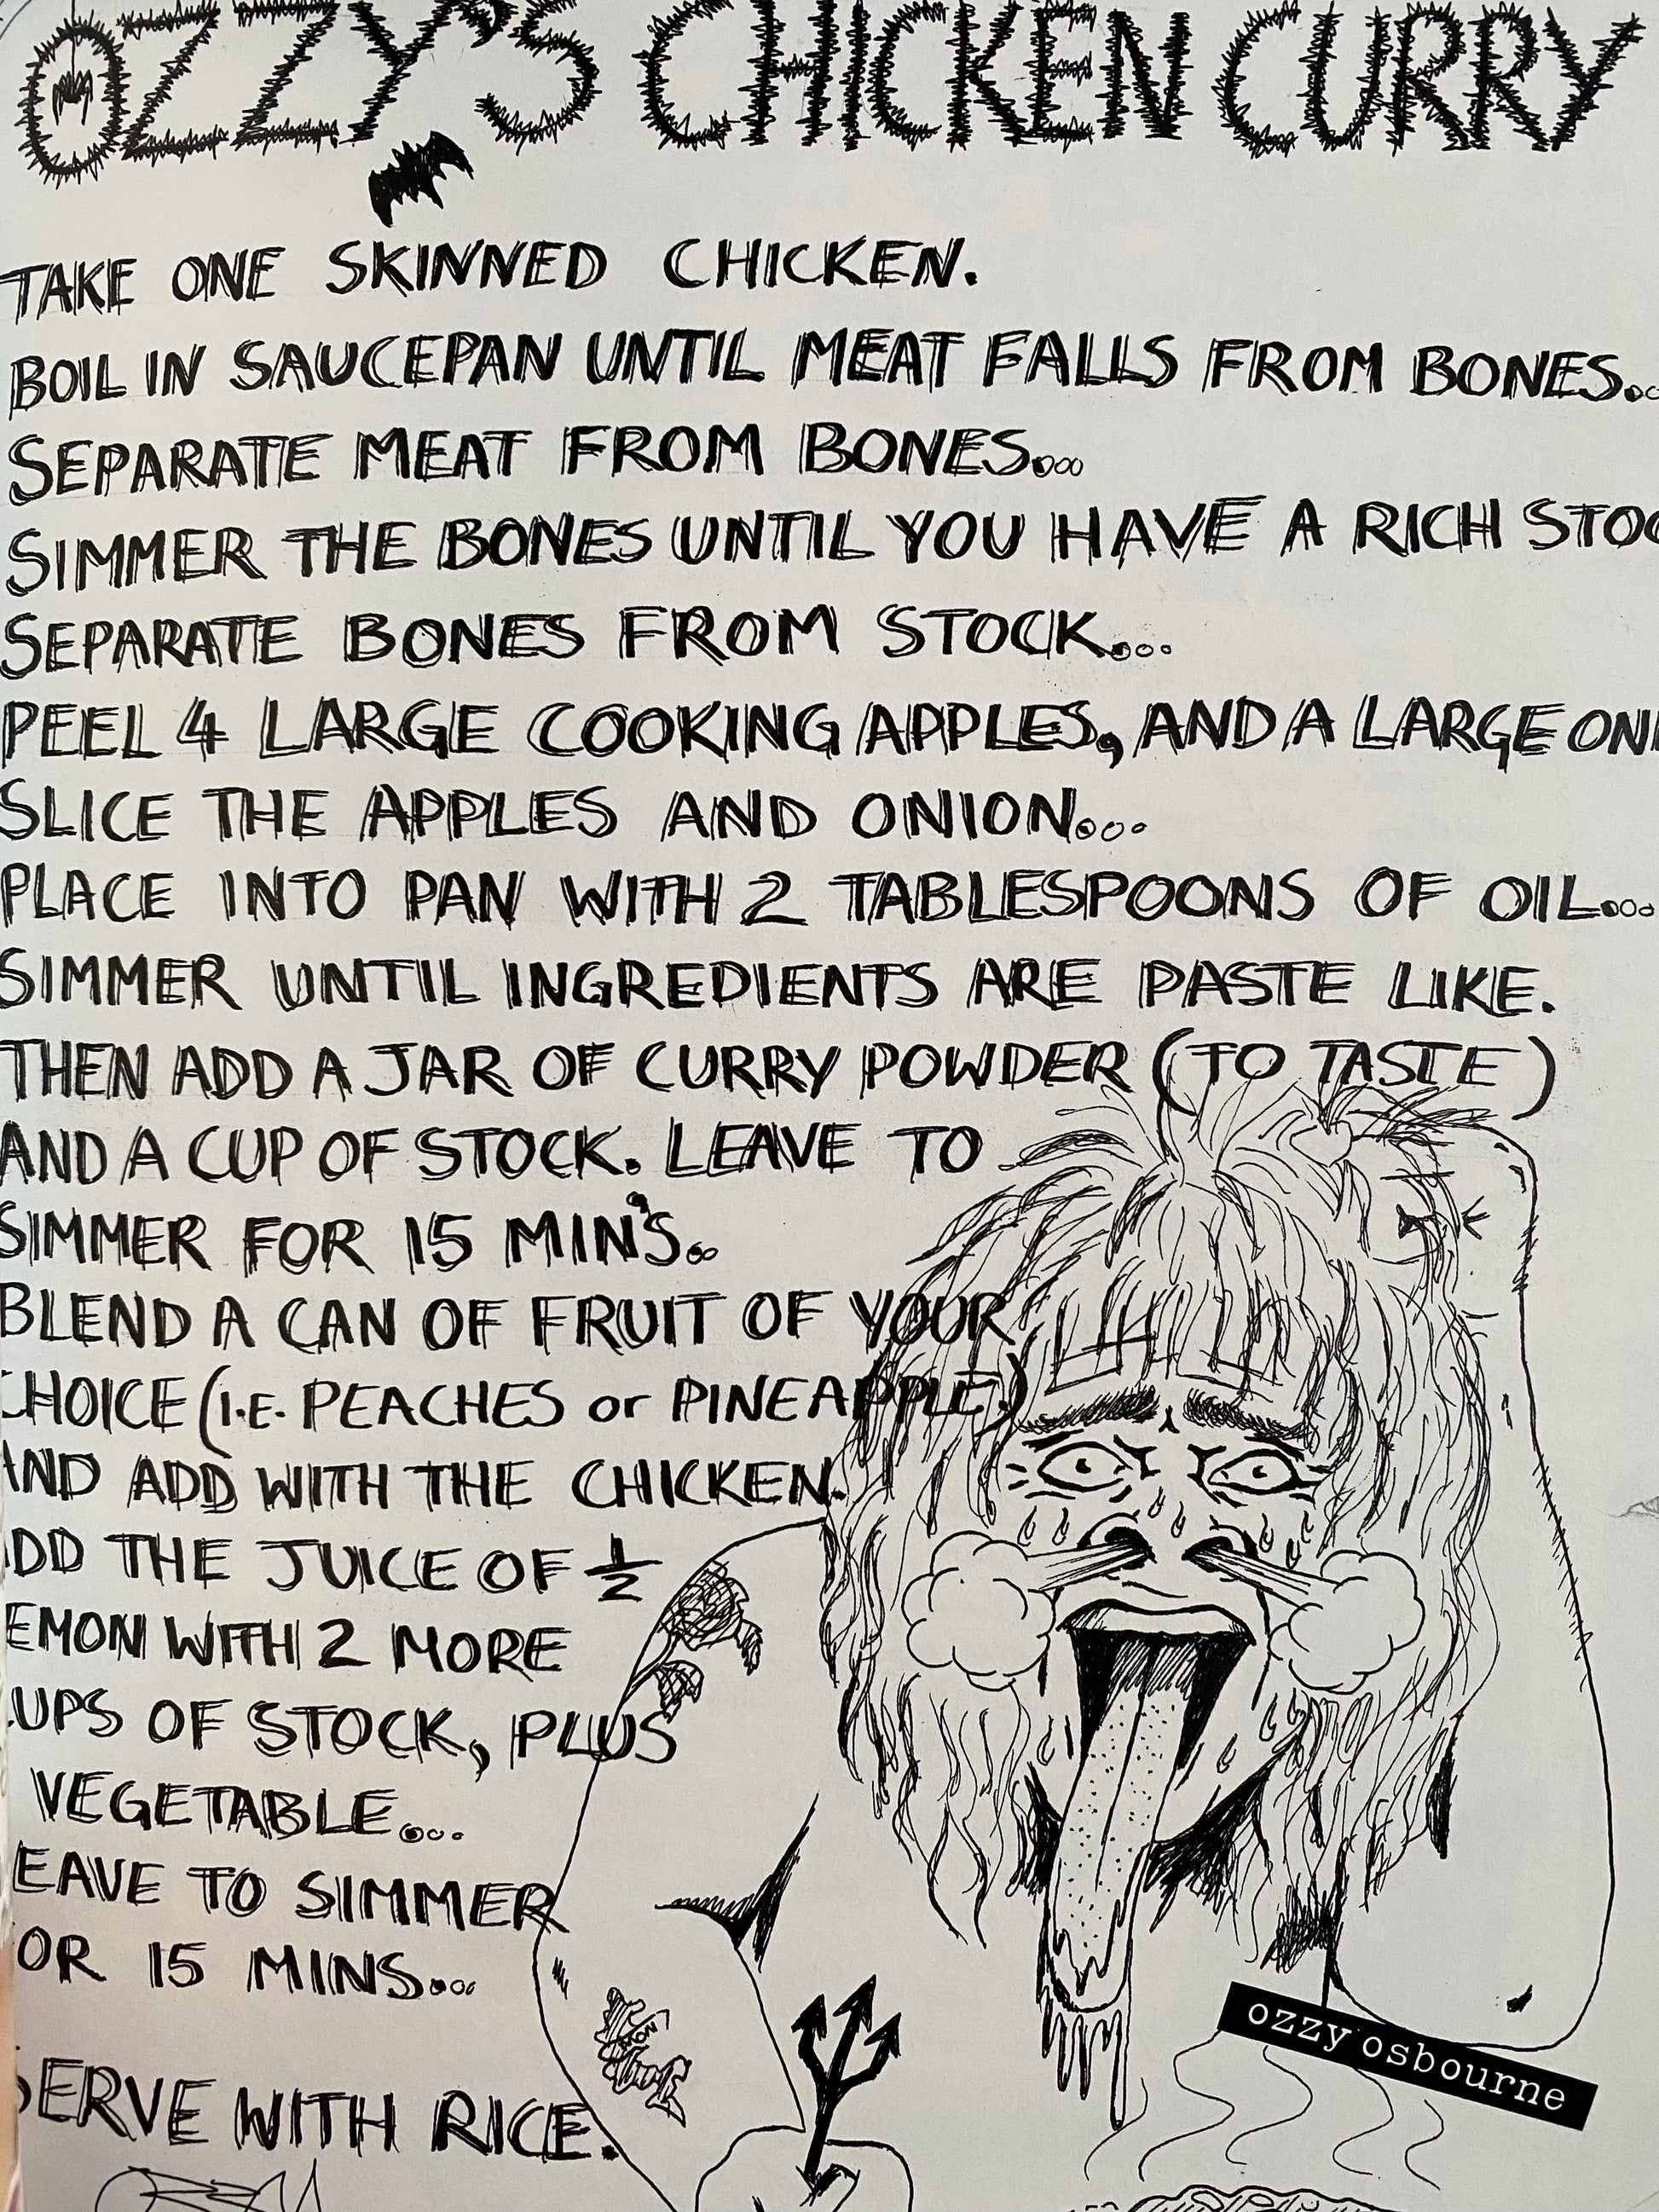 OZZY'S CHICKEN CURRY
TAKE ONE SKINNED CHICKEN.
BOIL IN SAUCEPAN UNTIL MEAT FALLS FROM BONES...
SEPARATE MEAT FROM BONES...
SIMMER THE BONES UNTIL YOU HAVE A RICH STOC
SEPARATE BONES FROM STOCK...
PEEL 4 LARGE COOKING APPLES, AND A LARGE ONI
SLICE THE APPLES AND ONION...
PLACE INTO PAN WITH 2 TABLESPOONS OF OIL...
SIMMER UNTIL INGREDIENTS ARE PASTE LIKE.
THEN ADD A JAR OF CURRY POWDER (TO TASTE)
AND A CUP OF STOCK. LEAVE TO
SIMMER FOR 15 MIN'S..
BLEND A CAN OF FRUIT OF YOUR
CHOICE (I.E. PEACHES or PINEAPPLE)
AND ADD WITH THE CHICKEN.
DD THE JUICE OF 1/2
EMON WITH 2 MORE
UPS OF STOCK, PLUS
VEGETABLE...
EAVE TO SIMMER
OR 15 MINS...
SERVE WITH RICE.
ozzy osbourne